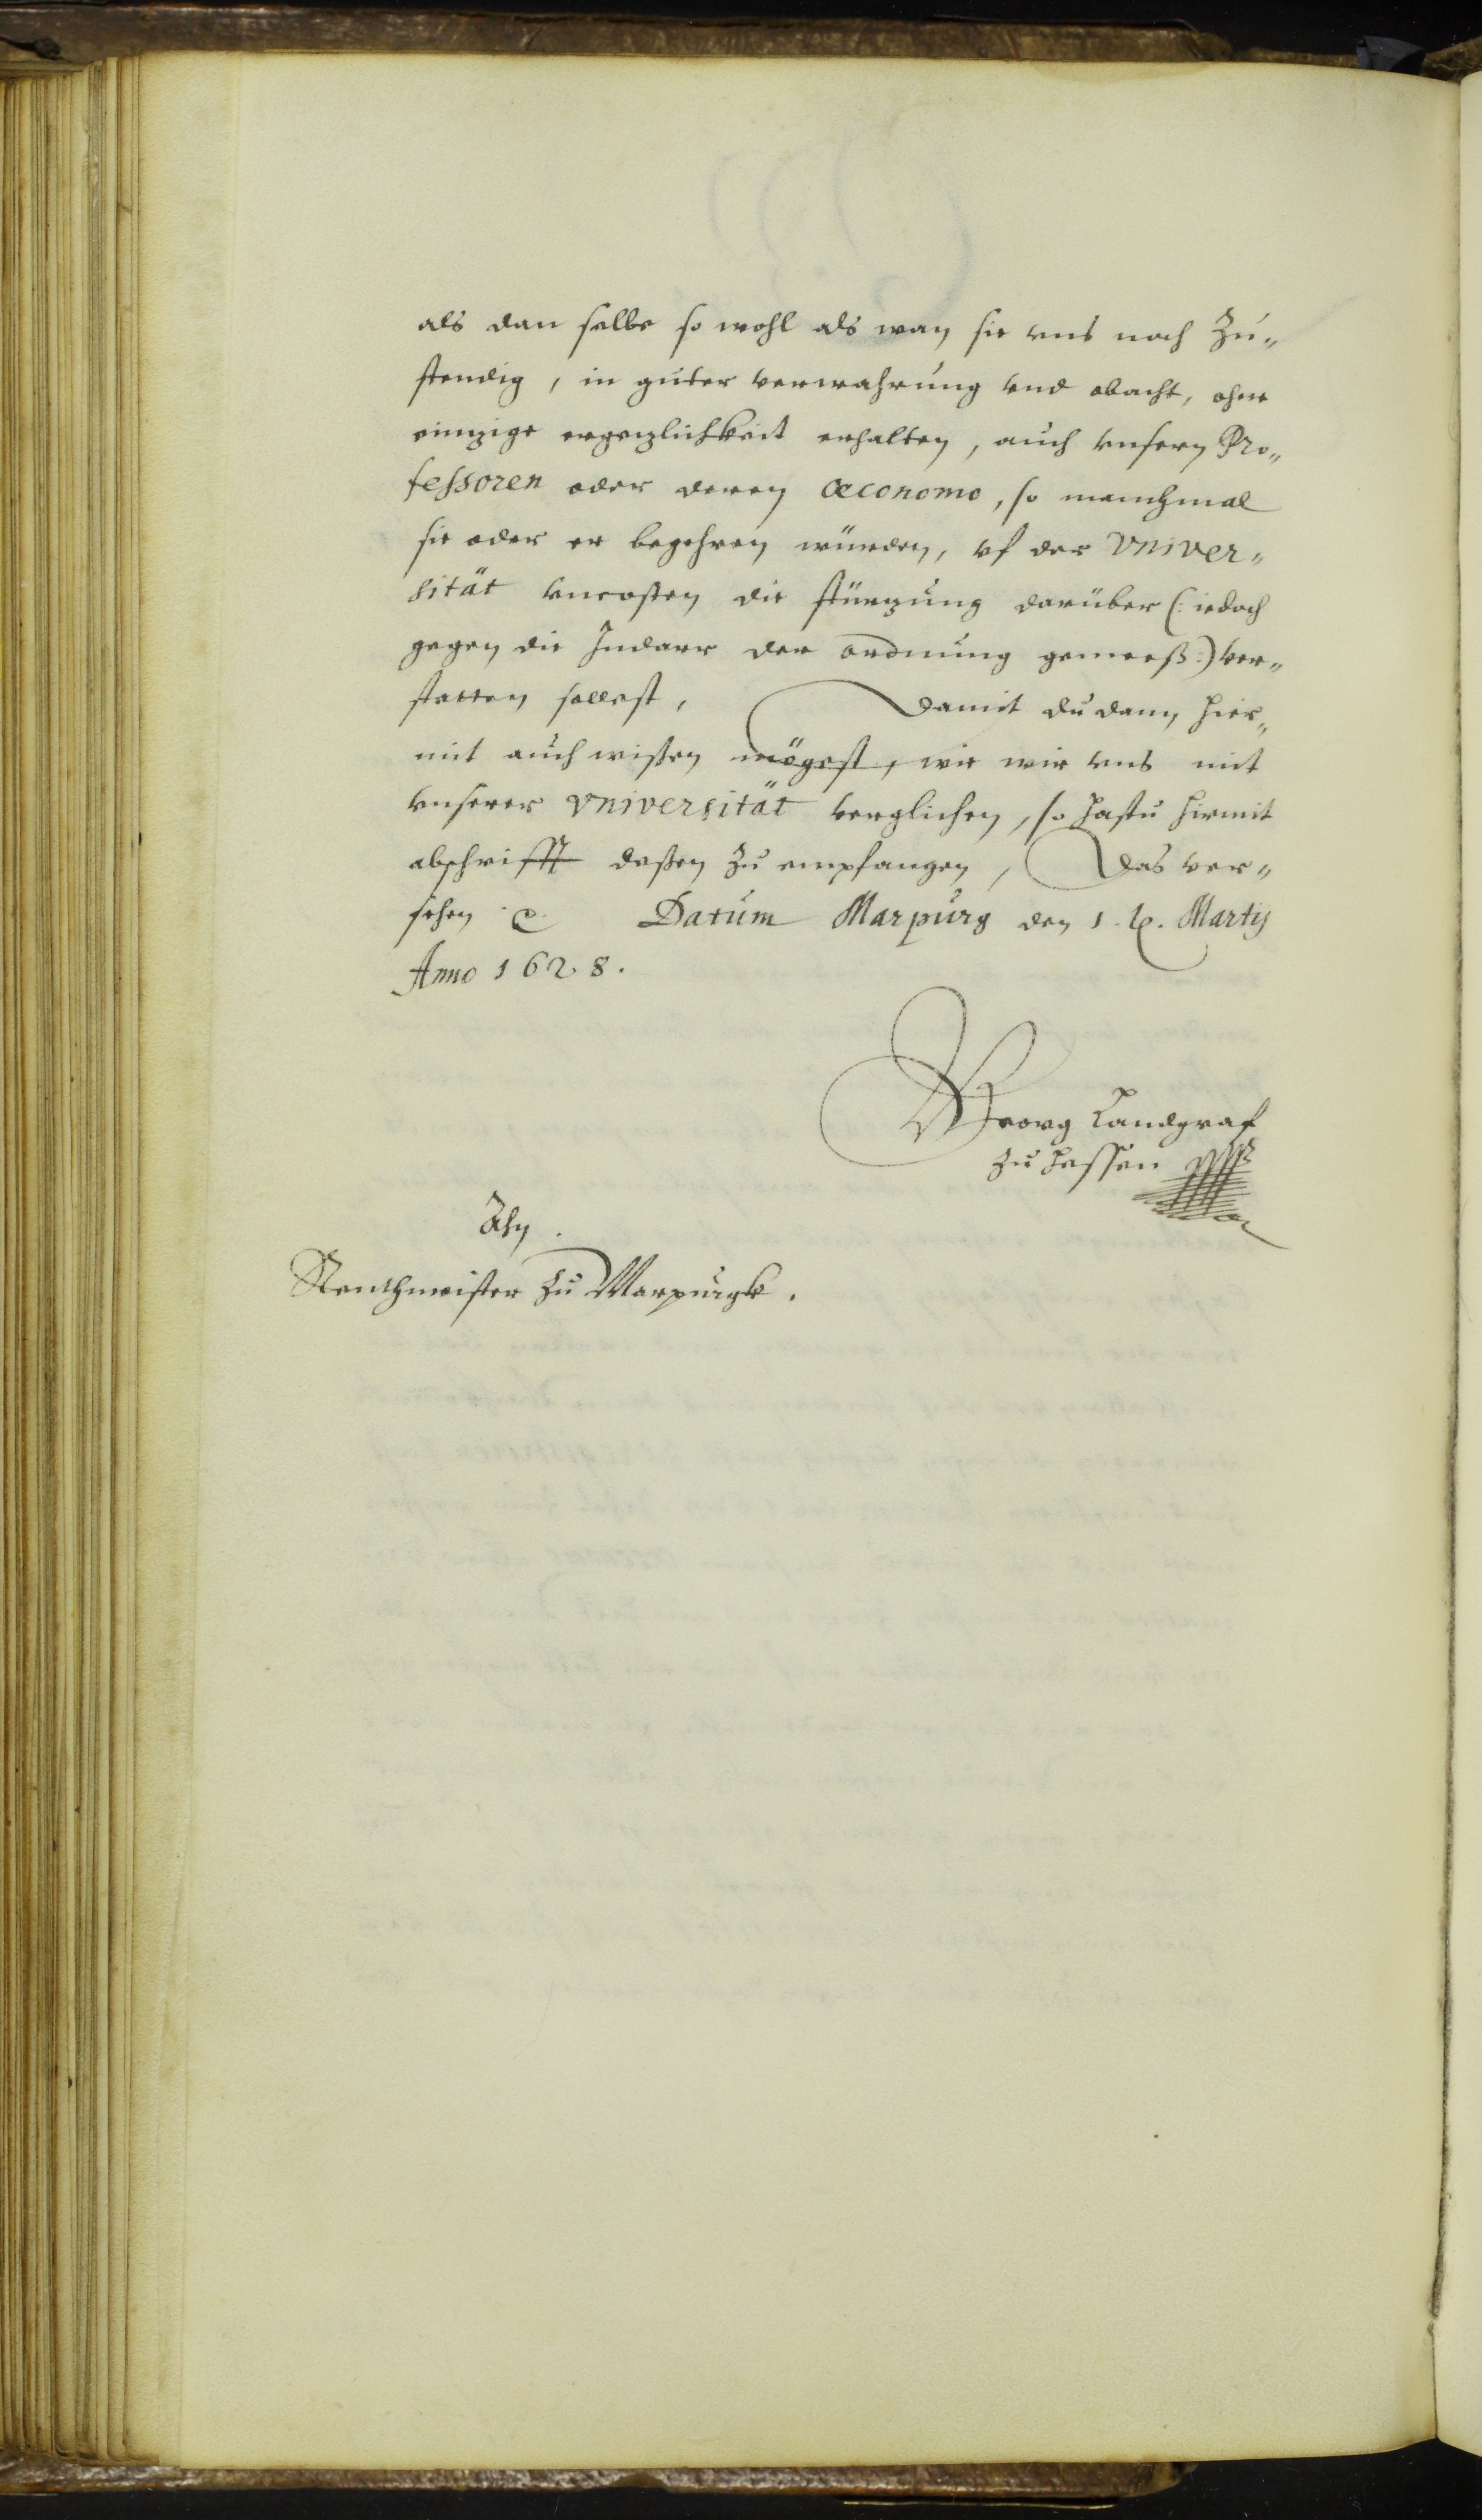 als dan selbe so wohl als wan sie vns noch Zu„
stendig, in guter verwahrung vnd obacht, ohne
einzige ergezlichkeit erhalten, auch vnsern Pro„
fessoren oder deren œconomo, so manchmal
sie oder er begehren würden, vf der Vniver„
sität vncosten die stürzung darüber (: iedoch
gegen die der ordnung gemeeß:) ver„
statten sollest, Damit du dann hier„
mit auch wißen mögest, wie wir vns mit
vnserer Vniversität verglichen, so hastu hirmit
abschrifft deßen zu empfangen, Das ver„
sehen Datum Marpurg den 1. Martij
Anno 1628.
Georg Landgraf
zu Hessen
Ahn
Renthmeister zu Marpurgk.